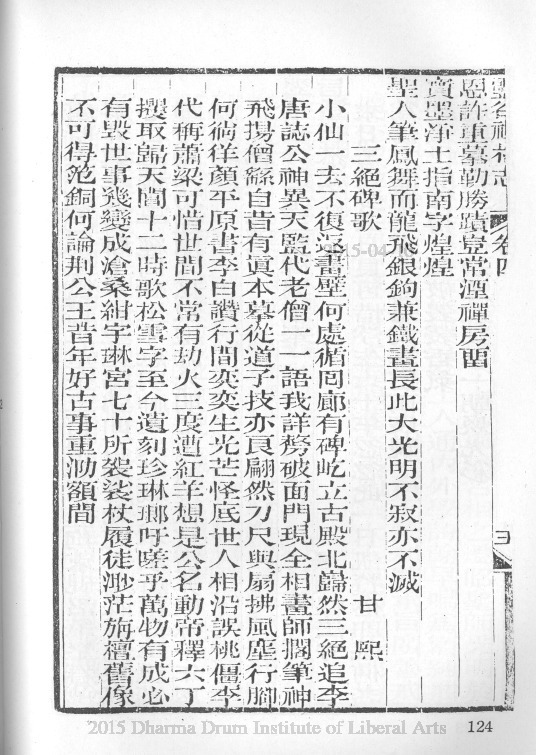 靈谷禪林志 卷四
恩許重摹勒勝蹟豈常湮禪房留
寶墨淨土指南字煌煌
聖人筆鳳舞而龍飛銀鉤兼鐵畫長此大光明不寂亦不滅
三絕碑歌 甘熙
小仙一去不復返畫壁何處循回廊有碑屹立古殿北巋然三絕追李
唐誌公神異天監代老僧一一語我詳剺破面門現全相畫師擱筆神
飛揚僧繇自昔有眞本摹從道子技亦良翩然刀尺與扇拂風塵行腳
何徜徉顏平原書李白讚行間奕奕生光芒怪底世人相沿誤桃僵李
代稱蕭梁可惜世間不常有劫火三度遭紅羊想是公名動帝釋六丁
攫取歸天閶十二時歌松雪字至今遺刻珍琳瑯吁嗟乎萬物有成必
有毀世事幾變成滄桑紺宇琳宮七十所袈裟杖履徒渺茫旃檀舊像
不可得范銅何論荆公王昔年好古事重泐額間
2015 Dharma Drum Institute of Liberal Arts 124